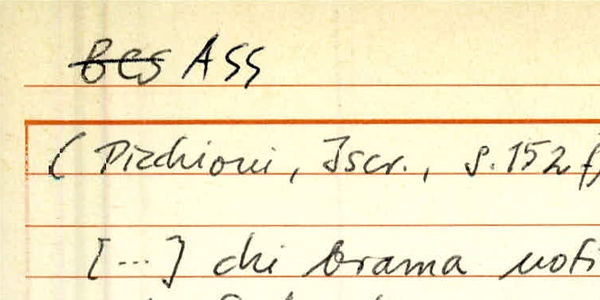 Bes ASS
(Picchioni, Iscr., S. 152 f)
[...] chi brama noti